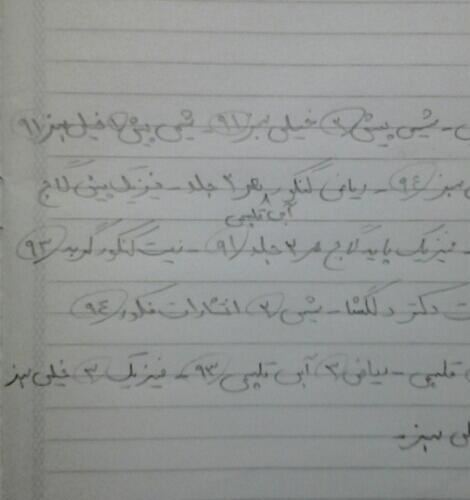 - شیمی پیش ۲ خیلی سبز ۹۱ - شیمی پیش ۱ خیلی سبز ۹۱
سبز ۹۴ - ریاضی کنکور هر ۲ جلد - فیزیک پیش گاج
آبی قلمچی
- فیزیک پایه گاج هر ۲ جلد ۹۱ - زیست کنکور ۹۳
دکتر دلگشا - شیمی ۲ انتشارات ۹۴
قلمچی - ریاضی ۲ آبی قلمچی ۹۳ - فیزیک ۳ خیلی سبز
سبز -